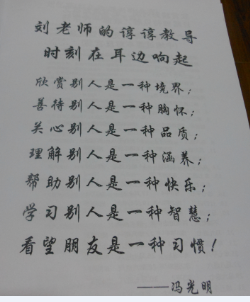 刘老师的谆谆教导
时刻在耳边响起
欣赏别人是一种境界；
善待别人是一种胸怀；
关心别人是一种品质；
理解别人是一种涵养；
帮助别人是一种快乐；
学习别人是一种智慧；
看望朋友是一种习惯！
——冯光明